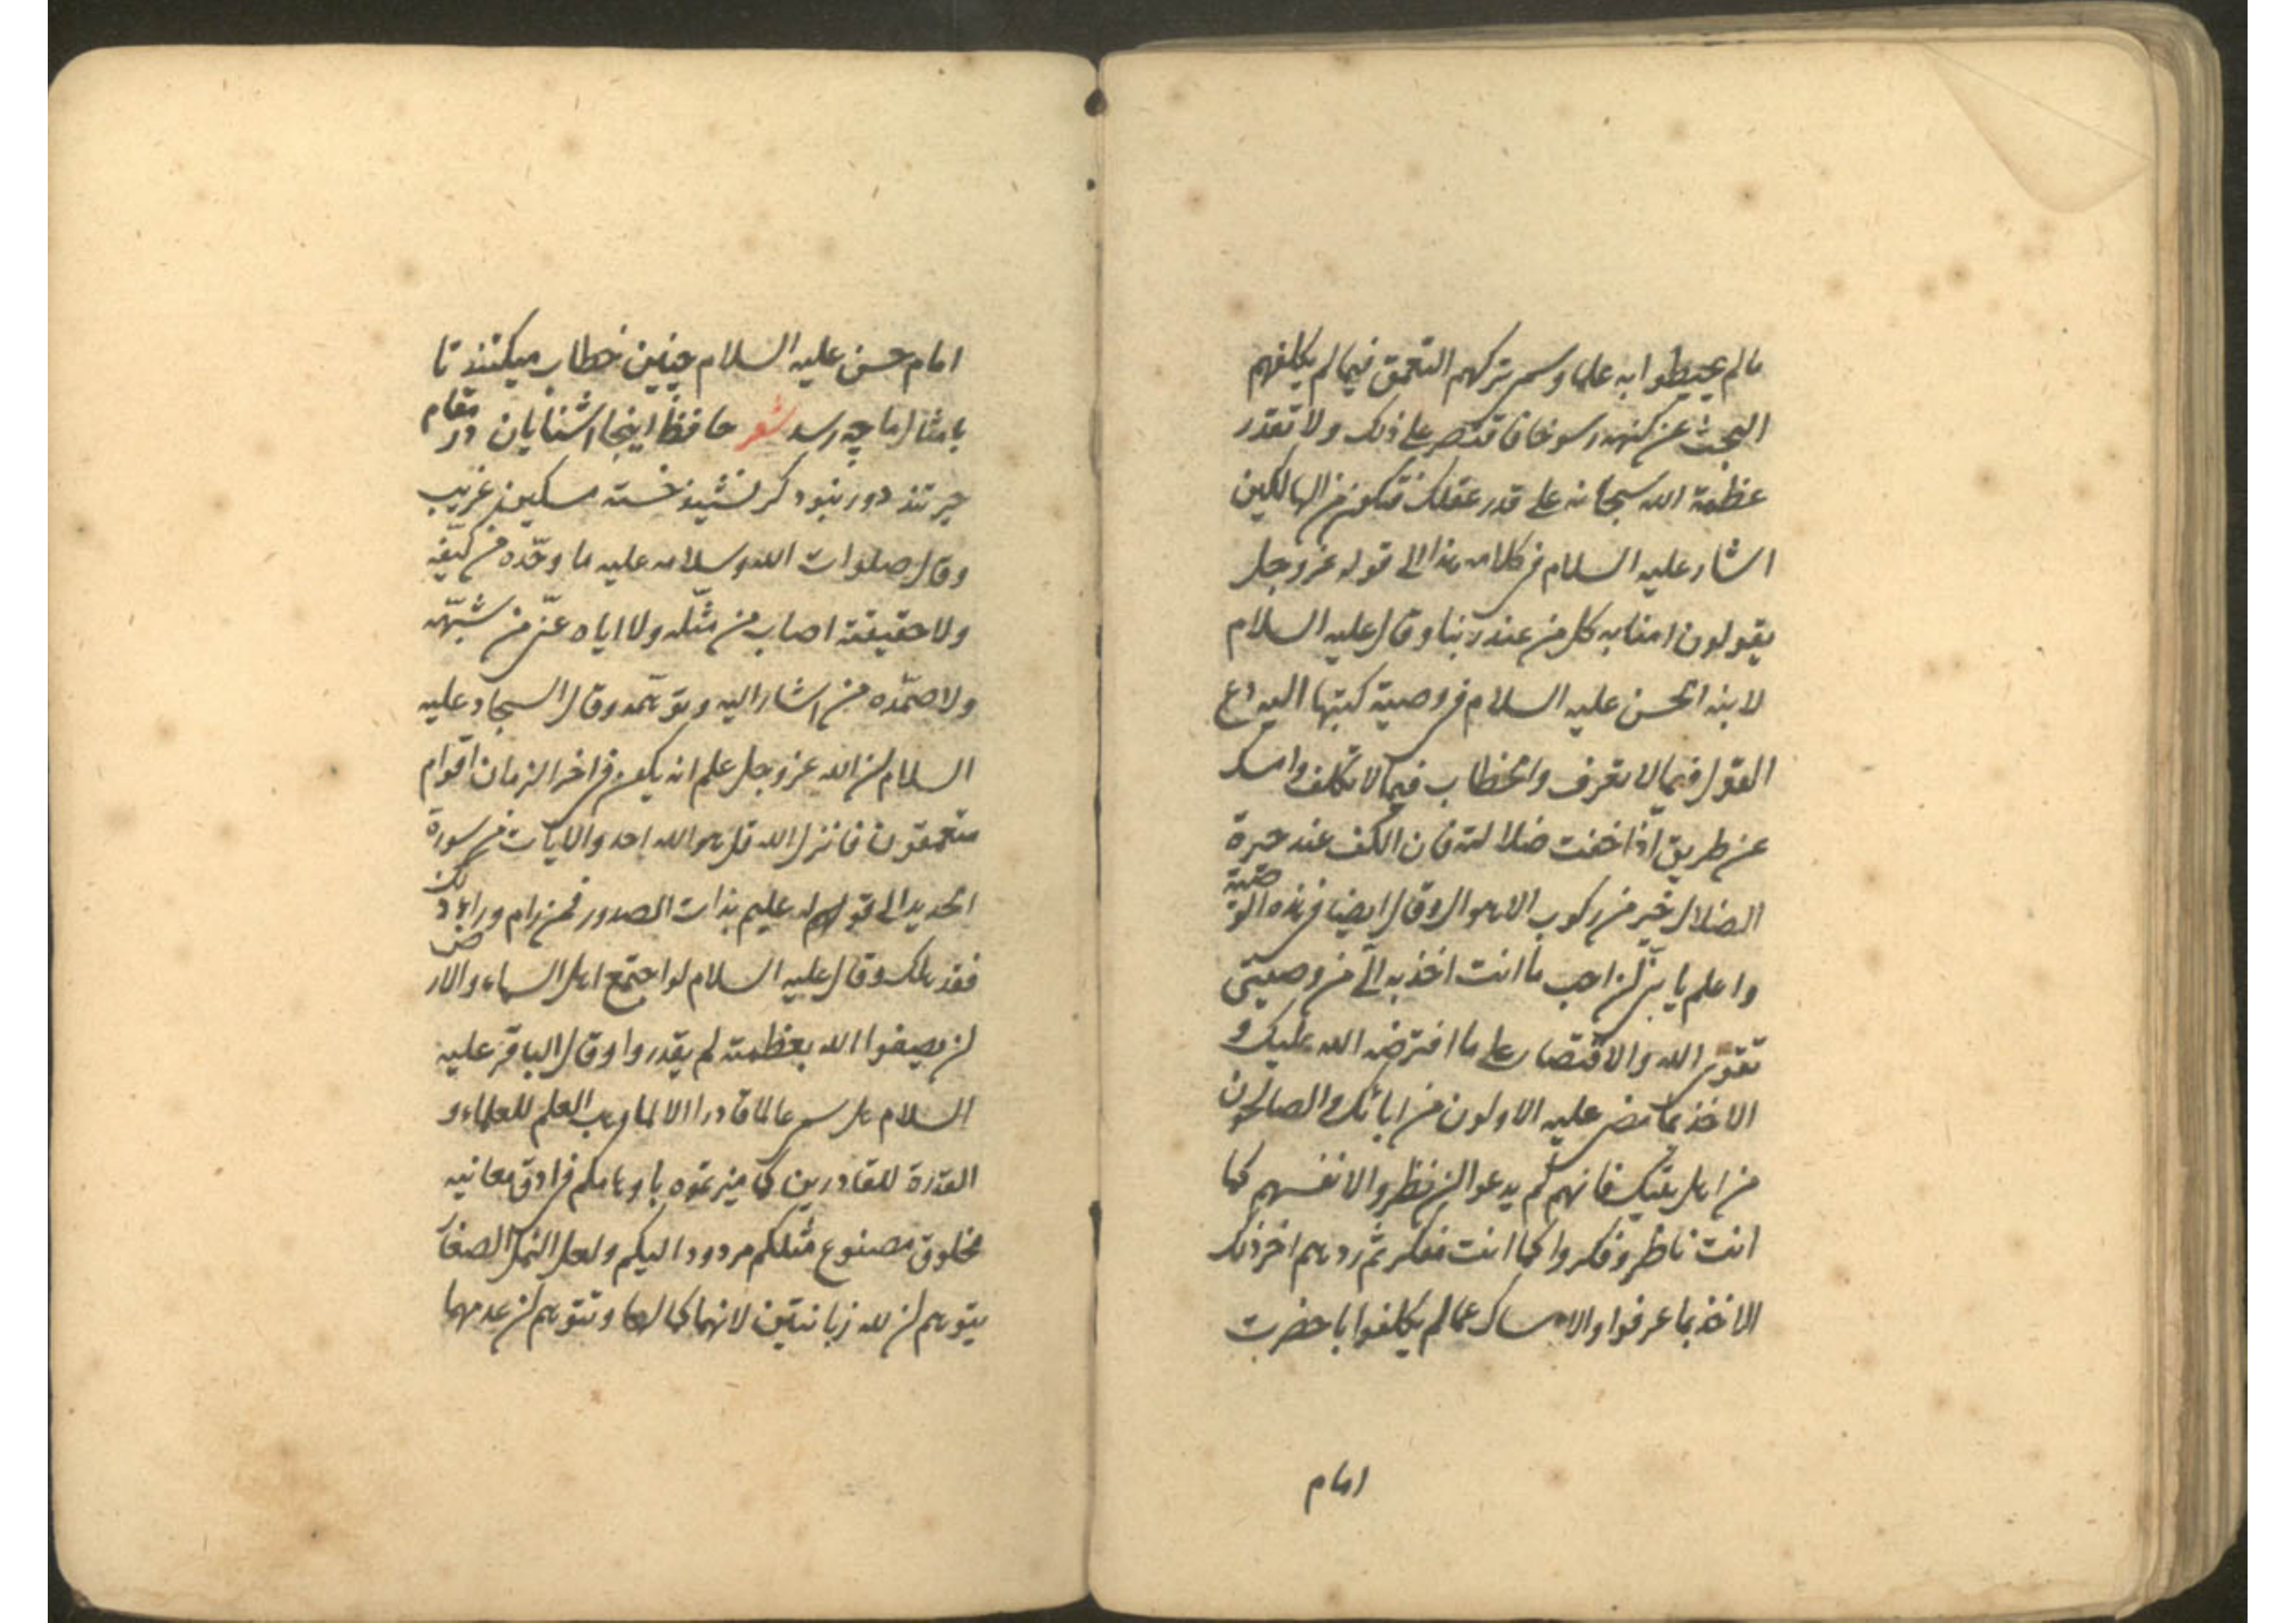 مالم یحیطوا به علما و سمی ترکهم التعمق فیما لم یکلفهم
البحث عن کنهه رسوخا فاقتصر علی ذلک ولا تقدر
عظمة الله سبحانه علی قدر عقلک فتکون من الهالکین
اشار علیه السلام فی کلامه هذا الی قوله عز و جل
یقولون امنا به کل من عند ربنا و قال علیه السلام
لابنه الحسن علیه السلام فی وصیة کتبها الیه دع
القول فیما لا تعرف والخطاب فیما لا تکلف وامسک
عن طریق اذا خفت ضلالته فان الکف عند حیرة
الضلال خیر من رکوب الاهوال و قال ایضا فی هذه الوصیة
واعلم یا بنی ان احب ما انت اخذ به الی من وصیتی
تقوی الله والاقتصار علی ما افترضه الله علیک و
الاخذ بما مضی علیه الاولون من ابائک والصالحون
من اهل بیتک فانهم لم یدعوا ان نظروا لانفسهم کما
انت ناظر و فکروا کما انت مفکر ثم ردهم اخر ذلک
الی الاخذ بما عرفوا والامساک عما لم یکلفوا با حضرت
امام
امام حسن علیه السلام چنین خطاب میکنند تا
بامثال ما چه رسد شعر حافظ اینجا اشنایان در مقام
حیرتند دور نبود کر نشیند خسته مسکین غریب
و قال صلوات الله و سلامه علیه ما وحّده من کیّفه
ولا حقیقته اصاب من مثّله ولا ایاه عنی من شبّهه
ولا صمّده من اشار الیه و توهّمه و قال السجاد علیه
السلام ان الله عز و جل علم انه یکون فی اخر الزمان اقوام
متعمقون فانزل الله قل هو الله احد والایات من سورة
الحدید الی قوله علیم بذات الصدور فمن رام وراء ذلک
فقد هلک و قال علیه السلام لو اجتمع اهل السماء والارض
ان یصفوا الله بعظمته لم یقدروا و قال الباقر علیه
السلام هل سمی عالما قادرا الا لما وهب العلم للعلماء و
القدرة للقادرین کلما میزتموه باوهامکم فی ادق معانیه
مخلوق مصنوع مثلکم مردود الیکم ولعل النمل الصغار
یتوهم ان لله زبانتین لانهما کمالها و تتوهم ان عدمهما